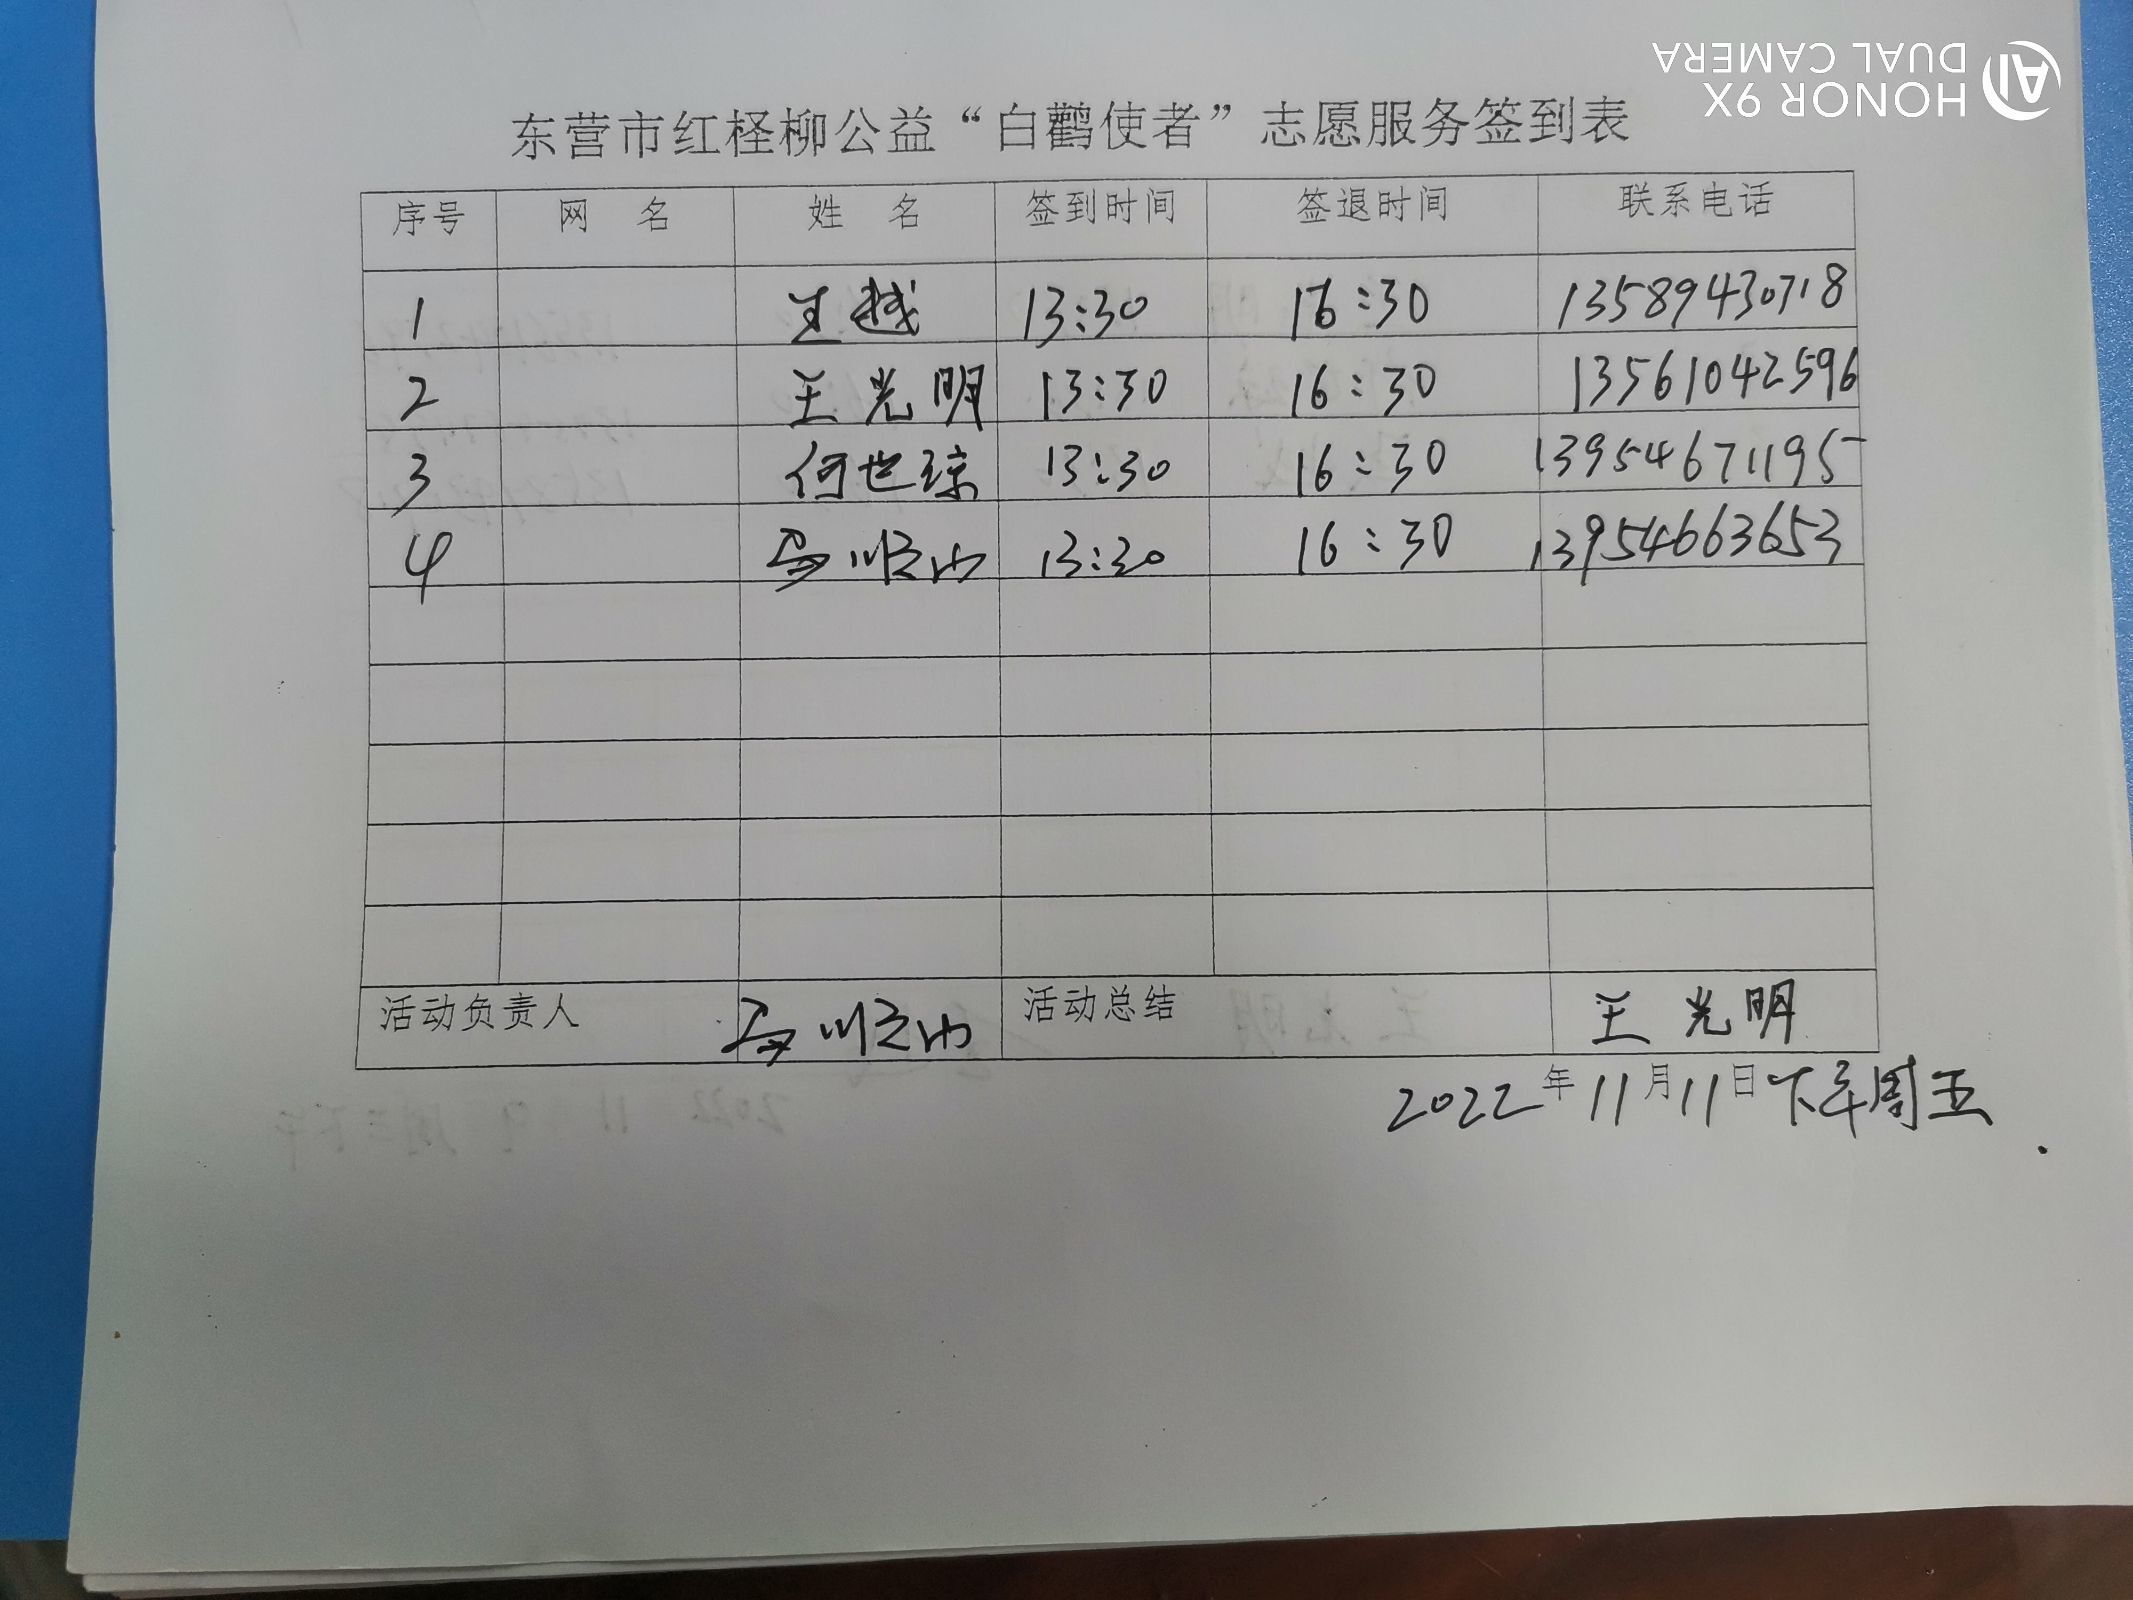 HONOR 9X
DUAL CAMERA
东营市红柽柳公益“白鹳使者”志愿服务签到表
序号 网 名 姓 名 签到时间 签退时间 联系电话
1 王越 13:30 16:30 13589430718
2 王光明 13:30 16:30 13561042596
3 何世琼 13:30 16:30 13954671195
4 马顺山 13:30 16:30 13954663653
活动负责人 马顺山 活动总结 王光明
2022年11月11日下午周五